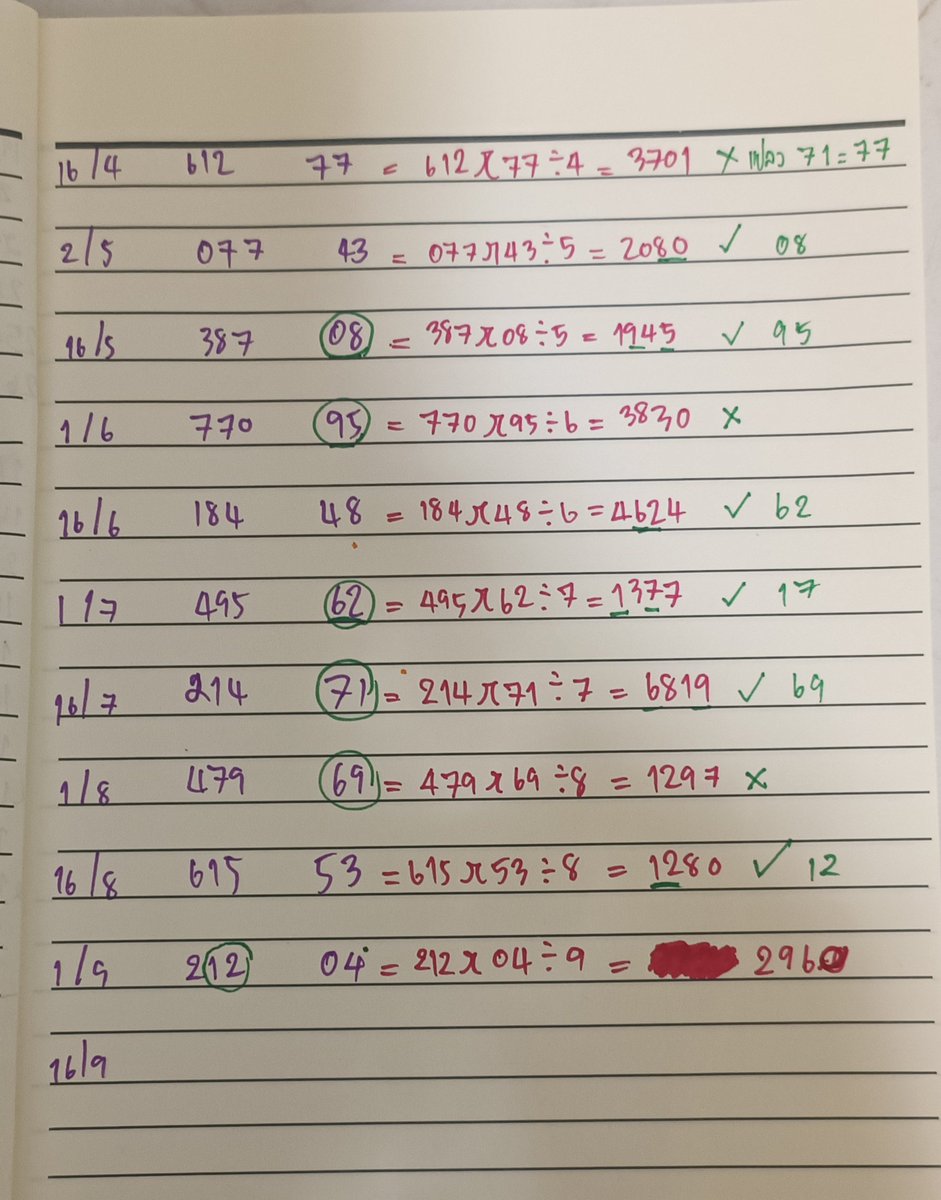 16/4 612 77 = 612x77÷4 = 3701 x เฟลว 71=77
2/5 077 43 = 077x43÷5 = 2080 ✓ 08
16/5 387 08 = 387x08÷5 = 1945 ✓ 95
1/6 770 95 = 770x95÷6 = 3830 x
16/6 184 48 = 184x48÷6 = 4624 ✓ 62
1/7 495 62 = 495x62÷7 = 1377 ✓ 17
16/7 214 71 = 214x71÷7 = 6819 ✓ 69
1/8 479 69 = 479x69÷8 = 1297 x
16/8 615 53 = 615x53÷8 = 1280 ✓ 12
1/9 212 04 = 212x04÷9 = 2960
16/9